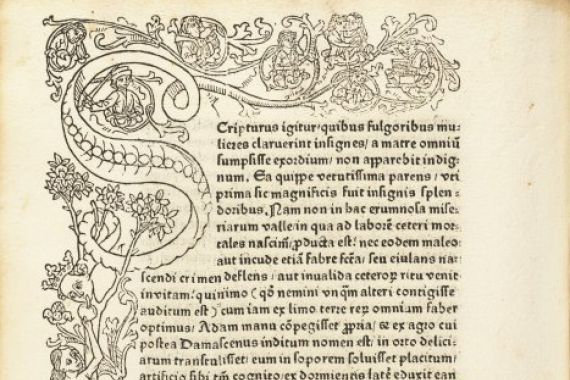 Scripturus igitur/quibus fulgoribus mu⸗
lieres claruerint insignes/a matre omniū
sumpsisse exordium/non apparebit indig⸗
num. Ea quippe vetustissima parens/vti
prima sic magnificis fuit insignis splen⸗
doribus. Nam non in hac erumnosa mise⸗
riarum valle/in qua ad laborē ceteri mor⸗
tales nascim̄/ꝓducta est/nec eodem malleo
aut incude etiā fabrefc̄ta/seu eiulans na⸗
scendi crimen deflens/aut inualida ceteroꝝ ritu venit
in vitam/quinimo (qď nemini vnq̄m alteri contigisse
auditum est) cum iam ex limo terre reꝝ omnium faber
optimus/Adam manu cōpegisset ꝓpria/& ex agro cui
postea Damascenus inditum nomen est/in orto delici⸗
arum transtulisset/eum in soporem soluisset placitum/
artificio sibi tm̄ cognito/ex dormientis latē eduxit ean